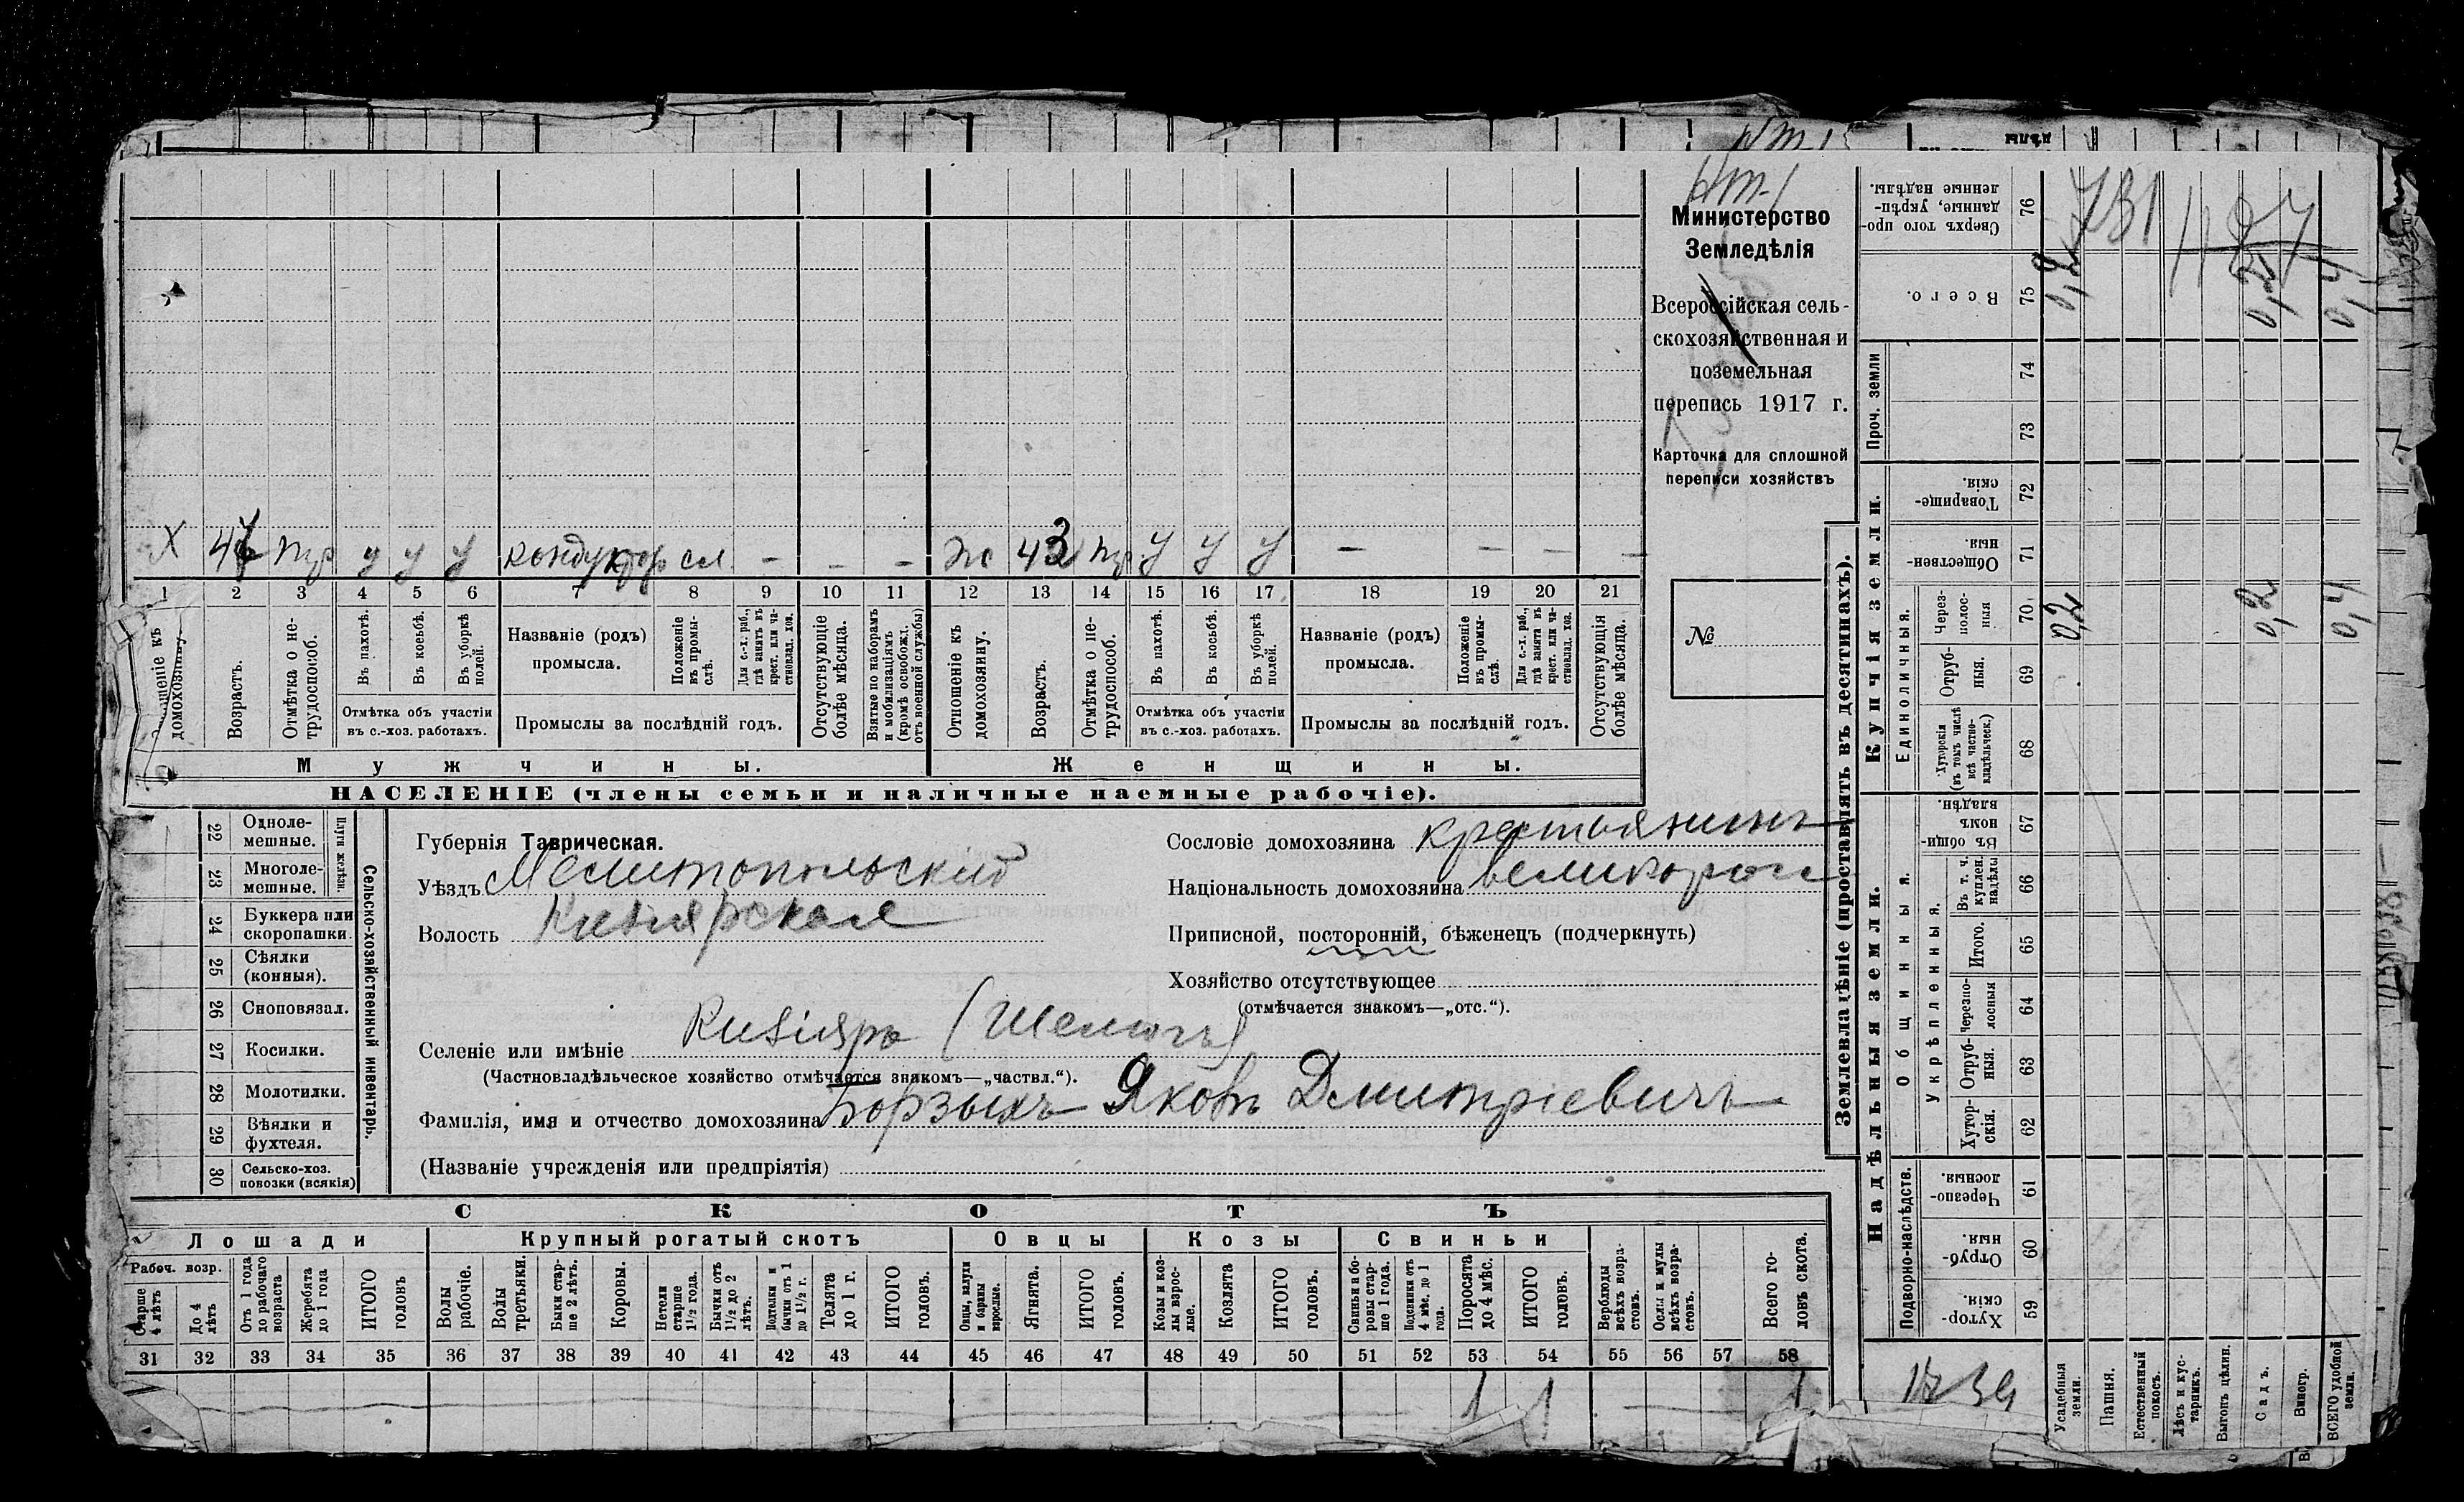 Министерство
Земледѣлія
Всероссійская сель-
скохозяйственная и
поземельная
перепись 1917 г.
Карточка для сплошной
переписи хозяйствъ
№
X 47 тр у у у кондуктор сл. - - - ж 43 тр у у у - - - -
1 2 3 4 5 6 7 8 9 10 11 12 13 14 15 16 17 18 19 20 21
домохозяину.
Возрастъ.
Отмѣтка о не-
трудоспособ.
Въ пахотѣ.
Въ косьбѣ.
Въ уборкѣ
полей.
Отмѣтка объ участіи
въ с.-хоз. работахъ.
Названіе (родъ)
промысла.
Положеніе
въ промы-
слѣ.
Для с.-х. раб.,
гдѣ занятъ въ
крест. или ча-
стновлад. хоз.
Промыслы за послѣдній годъ.
Отсутствующіе
болѣе мѣсяца.
Взятые по наборамъ
и мобилизаціямъ
(кромѣ освобожд.
отъ военной службы)
Отношеніе къ
домохозяину.
Возрастъ.
Отмѣтка о не-
трудоспособ.
Въ пахотѣ.
Въ косьбѣ.
Въ уборкѣ
полей.
Отмѣтка объ участіи
въ с.-хоз. работахъ.
Названіе (родъ)
промысла.
Положеніе
въ промы-
слѣ.
Для с.-х. раб.,
гдѣ занята въ
крест. или ча-
стновлад. хоз.
Промыслы за послѣдній годъ.
Отсутствующія
болѣе мѣсяца.
Мужчины.
Женщины.
НАСЕЛЕНІЕ (члены семьи и наличные наемные рабочіе).
Сельско-хозяйственный инвентарь.
Плуги желѣзн.
22 Одноле-
мешные.
23 Многоле-
мешные.
24 Буккера или
скоропашки.
25 Сѣялки
(конныя).
26 Сноповязал.
27 Косилки.
28 Молотилки.
29 Вѣялки и
фухтеля.
30 Сельско-хоз.
повозки (всякія)
Губернія Таврическая.
Уѣздъ Мелитопольскій
Волость Кизіярская
Сословіе домохозяина крестьянинъ
Національность домохозяина великоросс
Приписной, посторонній, бѣженецъ (подчеркнуть)
Хозяйство отсутствующее
(отмѣчается знакомъ—„отс.“).
Селеніе или имѣніе Кизіяръ (Шелюгъ)
(Частновладѣльческое хозяйство отмѣчается знакомъ—„частвл.“).
Фамилія, имя и отчество домохозяина Борзыхъ Яковъ Дмитріевичъ
(Названіе учрежденія или предпріятія)
СКОТЪ
Лошади
Крупный рогатый скотъ
Овцы
Козы
Свиньи
Рабоч. возр.
Старше
4 лѣтъ
До 4
лѣтъ
Отъ 1 года
до рабочаго
возраста
Жеребята
до 1 года
ИТОГО
головъ
Волы
рабочіе.
Волы
третьяки.
Быки стар-
ше 2 лѣтъ.
Коровы.
Нетели
старше
1½ года.
Бычки отъ
1½ до 2
лѣтъ.
Подтелки и
бычки отъ 1
до 1½ г.
Телята
до 1 г.
ИТОГО
головъ.
Овцы, валухи
и бараны
взрослые.
Ягнята.
ИТОГО
головъ.
Козы и коз-
лы взрос-
лые.
Козлята
ИТОГО
головъ.
Свиньи и бо-
ровы стар-
ше 1 года.
Подсвинки отъ
4 мѣс. до 1
года.
Поросята
до 4 мѣс.
ИТОГО
головъ.
Верблюды
всѣхъ возра-
стовъ.
Ослы и мулы
всѣхъ возра-
стовъ.
Всего го-
ловъ скота.
31 32 33 34 35 36 37 38 39 40 41 42 43 44 45 46 47 48 49 50 51 52 53 54 55 56 57 58
1 1 1
Землевладѣніе (проставлять въ десятинахъ).
Надѣльныя земли.
Купчія земли.
Проч. земли
Подворно-наслѣдств.
Общинныя.
Укрѣпленныя.
Единоличныя.
Сверхъ того про-
данные, укрѣп-
ленные надѣлы. 76
Всего. 75
74
73
Товарище-
скія. 72
Обществен-
ныя. 71
Через-
полос-
ныя 70
Отруб-
ныя. 69
Хуторскія
(въ томъ числѣ
всѣ частно-
владѣльческ.) 68
Въ общи-
номъ
владѣн. 67
Въ т. ч.
куплен.
надѣлы 66
Итого. 65
Черезпо-
лосныя 64
Отруб-
ныя. 63
Хутор-
скія. 62
Черезпо-
лосныя 61
Отруб-
ныя. 60
Хутор-
скія. 59
0,2 0,2 0,4
0,2 0,2 0,4
1739
Усадебныя
земли.
Пашня.
Естественный
покосъ.
Лѣсъ и кус-
тарникъ.
Выгонъ цѣлин.
Садъ.
Виногр.
ВСЕГО удобной
земли.